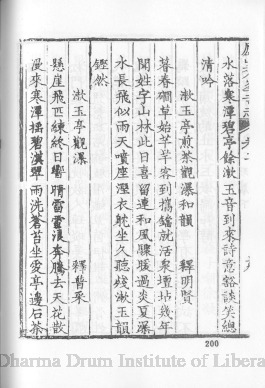 水落寒潭碧亭餘漱玉音到來詩意豁談笑總
清吟
漱玉亭煎茶觀瀑和韻 釋明賢
暮春磵草始芊芊客到攜鐺就活泉壇坫幾年
聞姓字山林此日喜留連和風驟擬過炎夏瀑
水長飛似雨天噴座溼衣躭坐久聽殘漱玉韻
鏗然
漱玉亭觀瀑 釋晋采
懸崖飛匹練終日響晴雷雪浪奔騰去天花散
漫來寒潭搖碧漢翠雨洗蒼苔坐愛亭邊石茶
200
Dharma Drum Institute of Libera